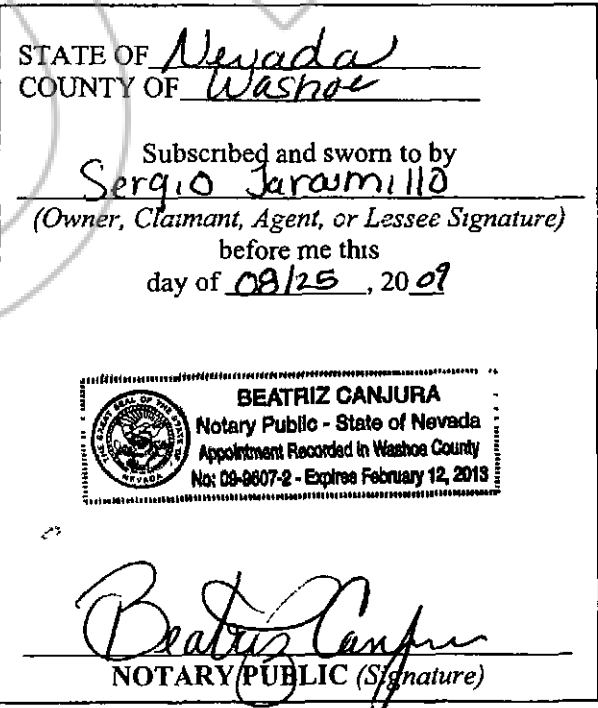 STATE OF Nevada
COUNTY OF Washoe
Subscribed and sworn to by
Sergio Jaramillo
(Owner, Claimant, Agent, or Lessee Signature)
before me this
day of 08/25, 2009
BEATRIZ CANJURA
Notary Public - State of Nevada
Appointment Recorded in Washoe County
No: 09-9607-2 - Expires February 12, 2013
THE GREAT SEAL OF THE STATE OF NEVADA
Beatriz Canjura
NOTARY PUBLIC (Signature)